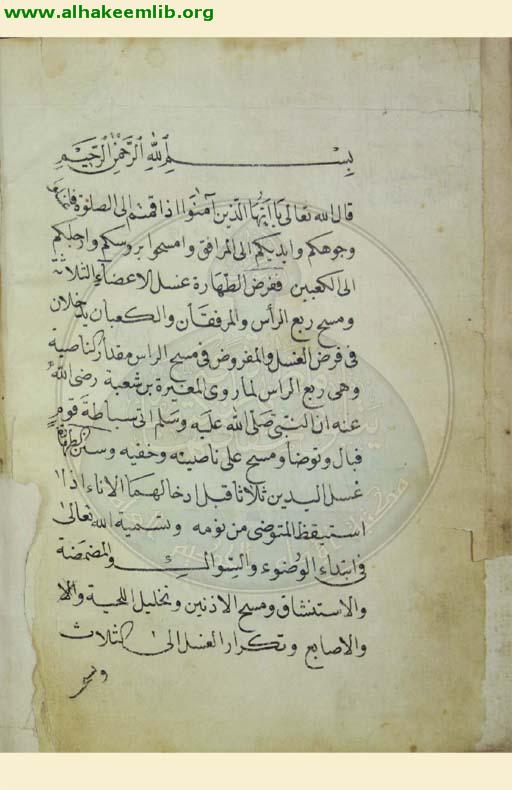 www.alhakeemlib.org
بسم الله الرحمن الرحيم
قال الله تعالى يا ايها الذين آمنوا اذا قمتم الى الصلوة فاغسلوا
وجوهكم وايديكم الى المرافق وامسحوا بروسكم وارجلكم
الى الكعبين ففرض الطهارة غسل الاعضاء الثلاثة
ومسح ربع الرأس والمرفقان والكعبان يدخلان
فى فرض الغسل والمفروض فى مسح الراس مقدار الناصية
وهى ربع الراس لما روى المغيرة بن شعبة رضى الله
عنه ان النبى صلى الله عليه وسلم اتى سباطة قوم
فبال وتوضا ومسح على ناصيته وخفيه وسنن الطهارة
غسل اليدين ثلاثا قبل ادخالهما الاناء اذا
استيقظ المتوضى من نومه وتسمية الله تعالى
فى ابتداء الوضوء والسواك والمضمضة
والاستنشاق ومسح الاذنين وتخليل اللحية والا
والاصابع وتكرار الغسل الى الثلاث